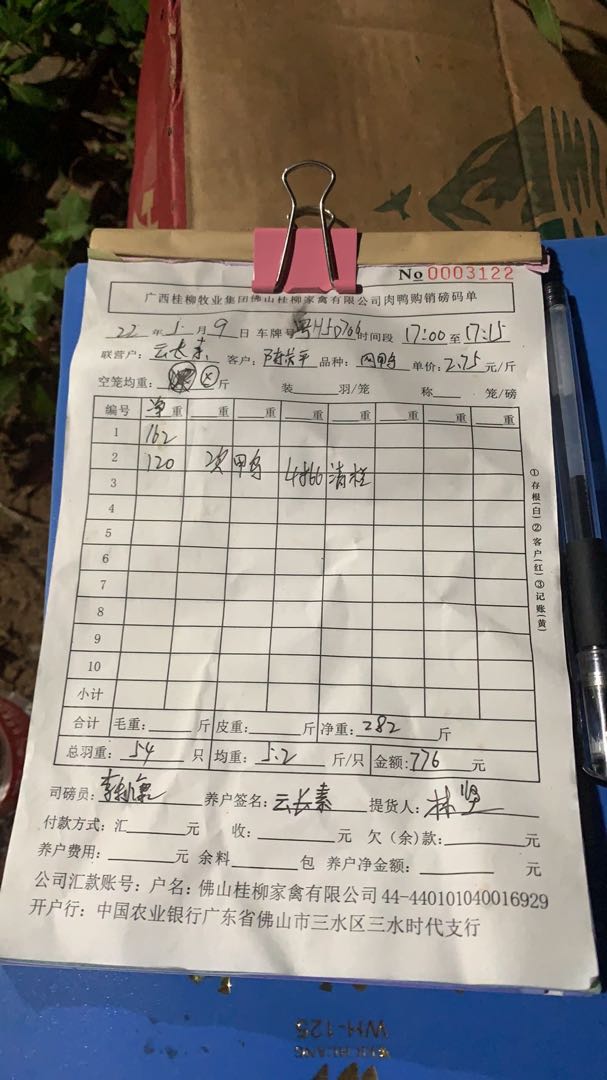 No 0003122
广西桂柳牧业集团佛山桂柳家禽有限公司肉鸭购销磅码单
22 年 5 月 9 日 车牌号 粤H50766 时间段 17:00 至 17:15
联营户: 云长 客户: 品种: 鸭 单价: 2.75 元/斤
空笼均重: 斤 装 羽/笼 称 笼/磅
编号 净重 重 重 重 重 重 重 重
1 162
2 120 次 鸭
3 清栏
4
5
6
7
8
9
10
小计
合计 毛重: 斤 皮重: 斤 净重: 282 斤
总羽重: 54 只 均重: 5.2 斤/只 金额: 776 元
司磅员: 李 养户签名: 云长素 提货人: 林坚
付款方式: 汇 元 收: 元 欠(余)款: 元
养户费用: 元 余料 包 养户净金额: 元
公司汇款账号: 户名: 佛山桂柳家禽有限公司 44-440101040016929
开户行: 中国农业银行广东省佛山市三水区三水时代支行
①存根(白)②客户(红)③记账(黄)
WH-125